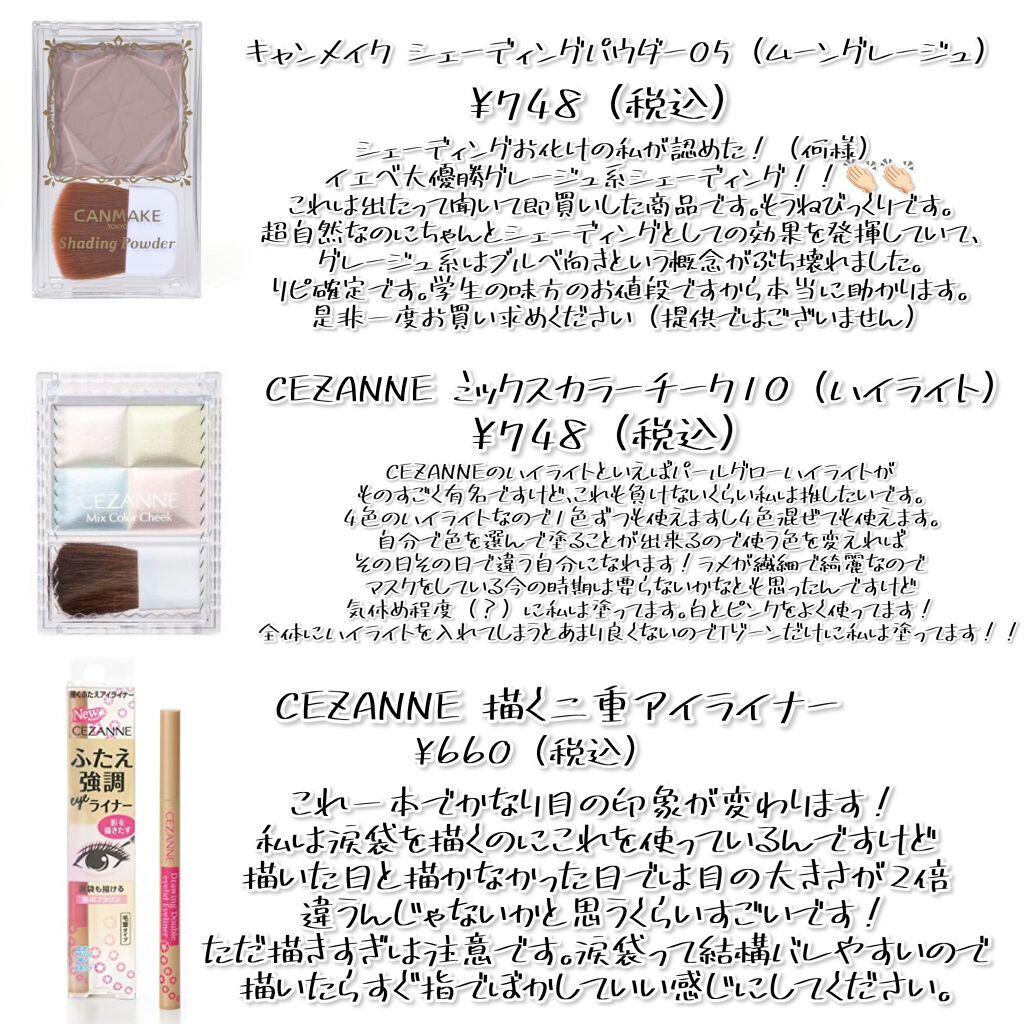 キャンメイク シェーディングパウダー05（ムーングレージュ）
¥748（税込）
シェーディングお化けの私が認めた！（何様）
イエベ大優勝グレージュ系シェーディング！！👏🏻👏🏻
これは出たって聞いて即買いした商品です。もうねびっくりです。
超自然なのにちゃんとシェーディングとしての効果を発揮していて、
グレージュ系はブルベ向きという概念がぶち壊れました。
リピ確定です。学生の味方のお値段ですから本当に助かります。
是非一度お買い求めください（提供ではございません）
CANMAKE
TOKYO
Shading Powder
CEZANNE ミックスカラーチーク10（ハイライト）
¥748（税込）
CEZANNEのハイライトといえばパールグローハイライトが
ものすごく有名ですけど、これも負けないくらい私は推したいです。
4色のハイライトなので1色ずつも使えますし4色混ぜても使えます。
自分で色を選んで塗ることが出来るので使う色を変えれば
その日その日で違う自分になれます！ラメが繊細で綺麗なので
マスクをしている今の時期は要らないかなとも思ったんですけど
気休め程度（？）に私は塗ってます。白とピンクをよく使ってます！
全体にハイライトを入れてしまうとあまり良くないのでTゾーンだけに私は塗ってます！！
CEZANNE
Mix Color Cheek
CEZANNE 描く二重アイライナー
¥660（税込）
これ一本でかなり目の印象が変わります！
私は涙袋を描くのにこれを使っているんですけど
描いた日と描かなかった日では目の大きさが2倍
違うんじゃないかと思うくらいすごいです！
ただ描きすぎは注意です。涙袋って結構バレやすいので
描いたらすぐ指でぼかしていい感じにしてください。
描くふたえアイライナー
New
CEZANNE
ふたえ
強調
eyeライナー
影を
描きたす
涙袋も描ける
影用ブラウン
毛筆タイプ
CEZANNE
Drawing Double
eyelid Eyeliner